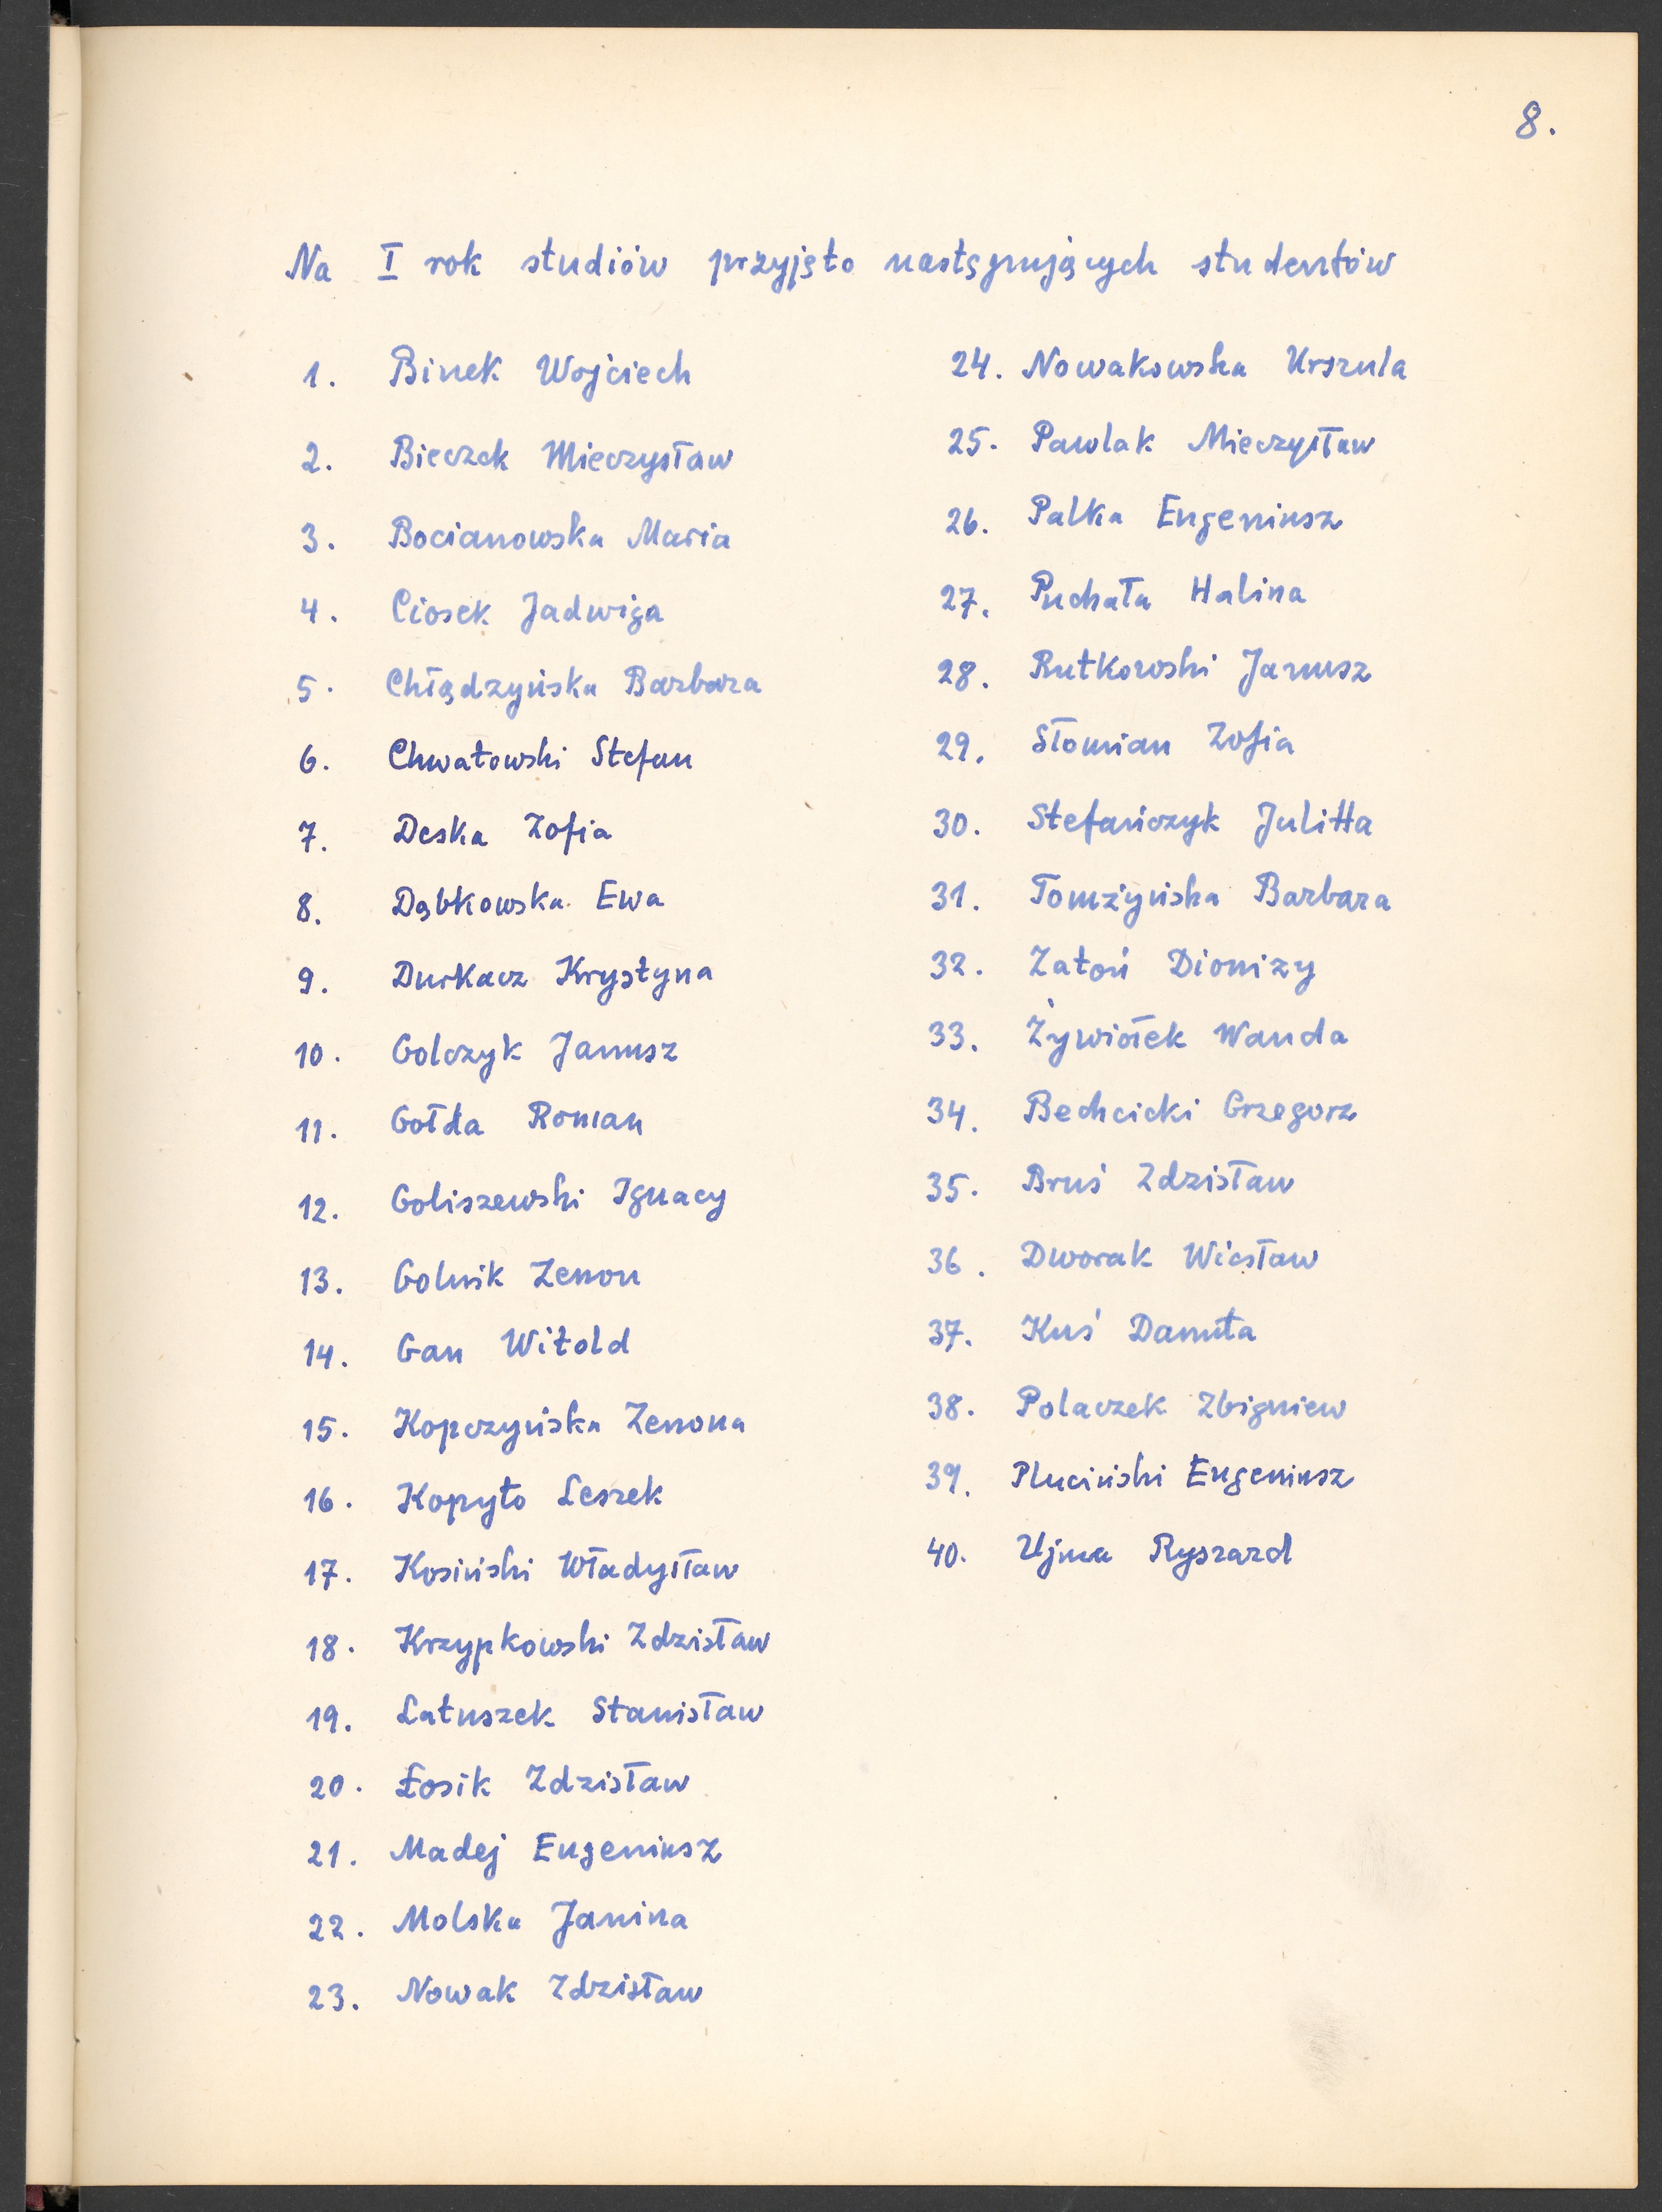 8.
Na I rok studiów przyjęto następujących studentów
1. Binek Wojciech
2. Bieczek Mieczysław
3. Bocianowska Maria
4. Ciosek Jadwiga
5. Chłądzyńska Barbara
6. Chwatowski Stefan
7. Deska Zofia
8. Dąbkowska Ewa
9. Durkacz Krystyna
10. Golczyk Janusz
11. Gołda Roman
12. Goliszewski Ignacy
13. Golnik Zenon
14. Gan Witold
15. Kopczyńska Zenona
16. Kopyto Leszek
17. Kosiński Władysław
18. Krzypkowski Zdzisław
19. Latuszek Stanisław
20. Łosik Zdzisław
21. Madej Eugeniusz
22. Molska Janina
23. Nowak Zdzisław
24. Nowakowska Urszula
25. Pawlak Mieczysław
26. Palka Eugeniusz
27. Puchała Halina
28. Rutkowski Janusz
29. Słomian Zofia
30. Stefańczyk Julitta
31. Tomżyńska Barbara
32. Zatoń Dionizy
33. Żywiołek Wanda
34. Bechcicki Grzegorz
35. Bruś Zdzisław
36. Dworak Wiesław
37. Kuś Danuta
38. Polaczek Zbigniew
39. Pluciński Eugeniusz
40. Ujma Ryszard